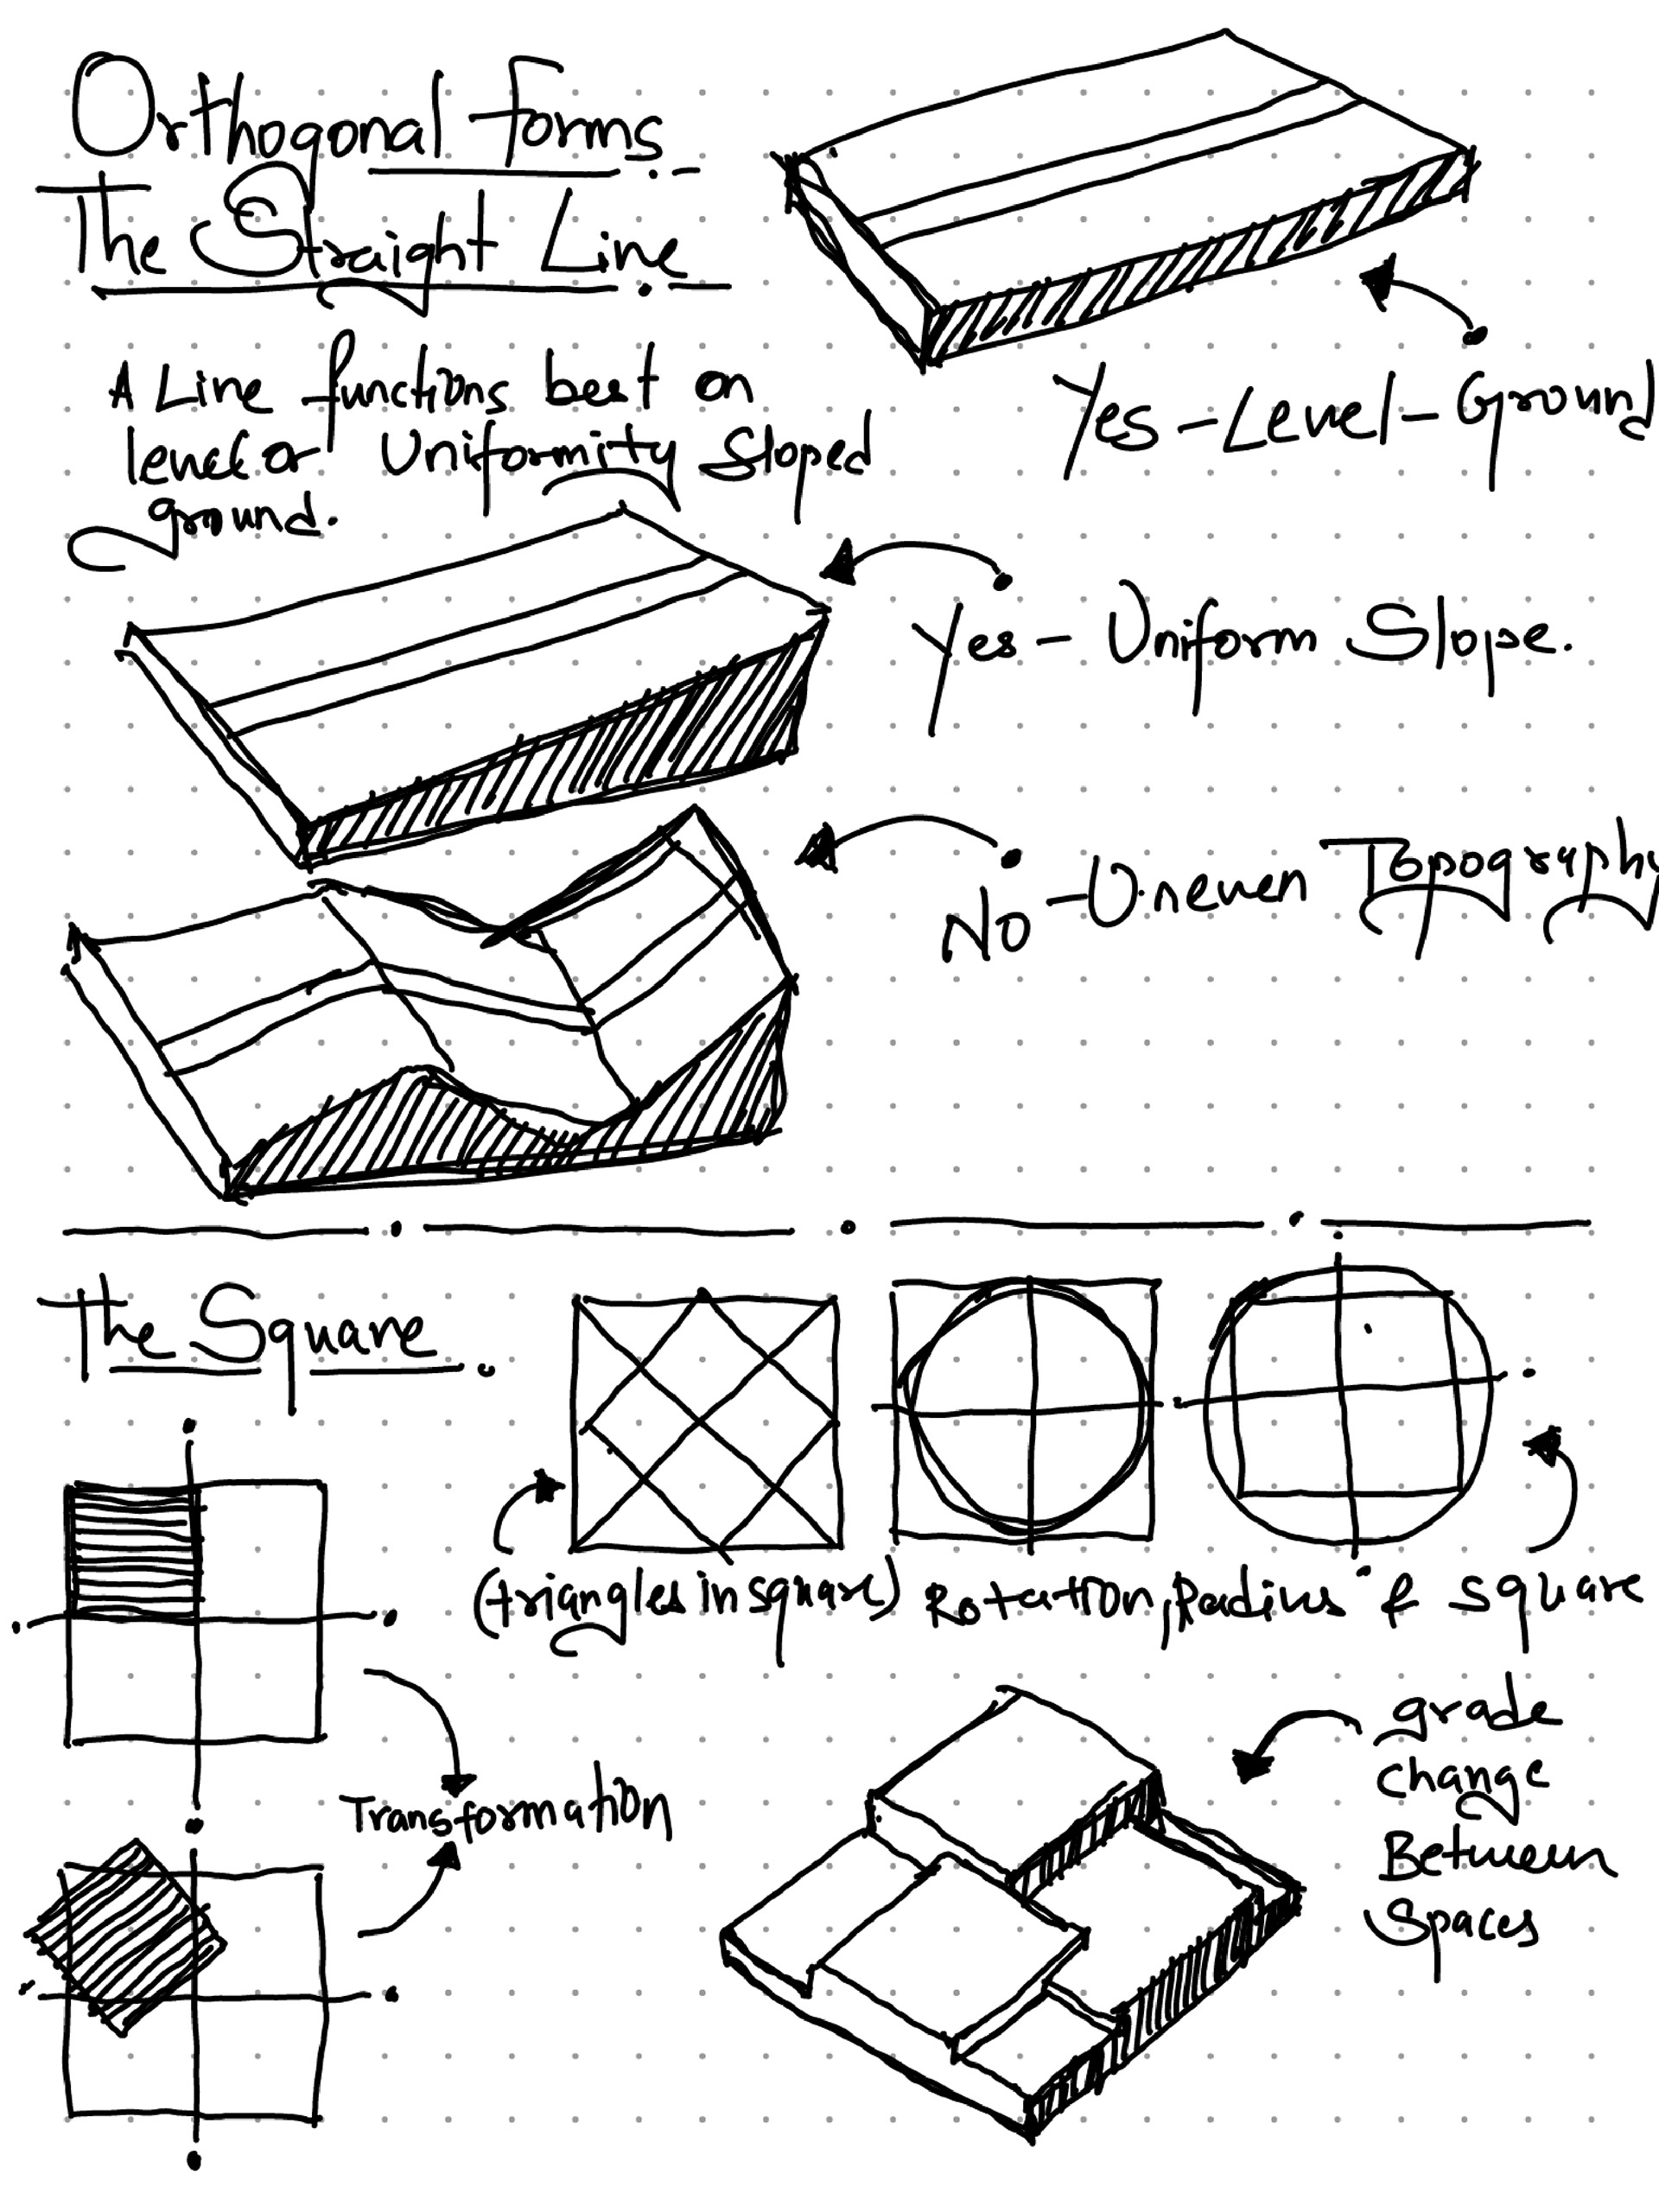 Orthogonal forms.
The Straight Line
A Line functions best on
level or Uniformity Sloped
ground.
Yes-Level-Ground
Yes- Uniform Slope.
No-Uneven Topography
The Square.
(triangles in square) Rotation, Radius & square
Transformation
grade
change
Between
Spaces